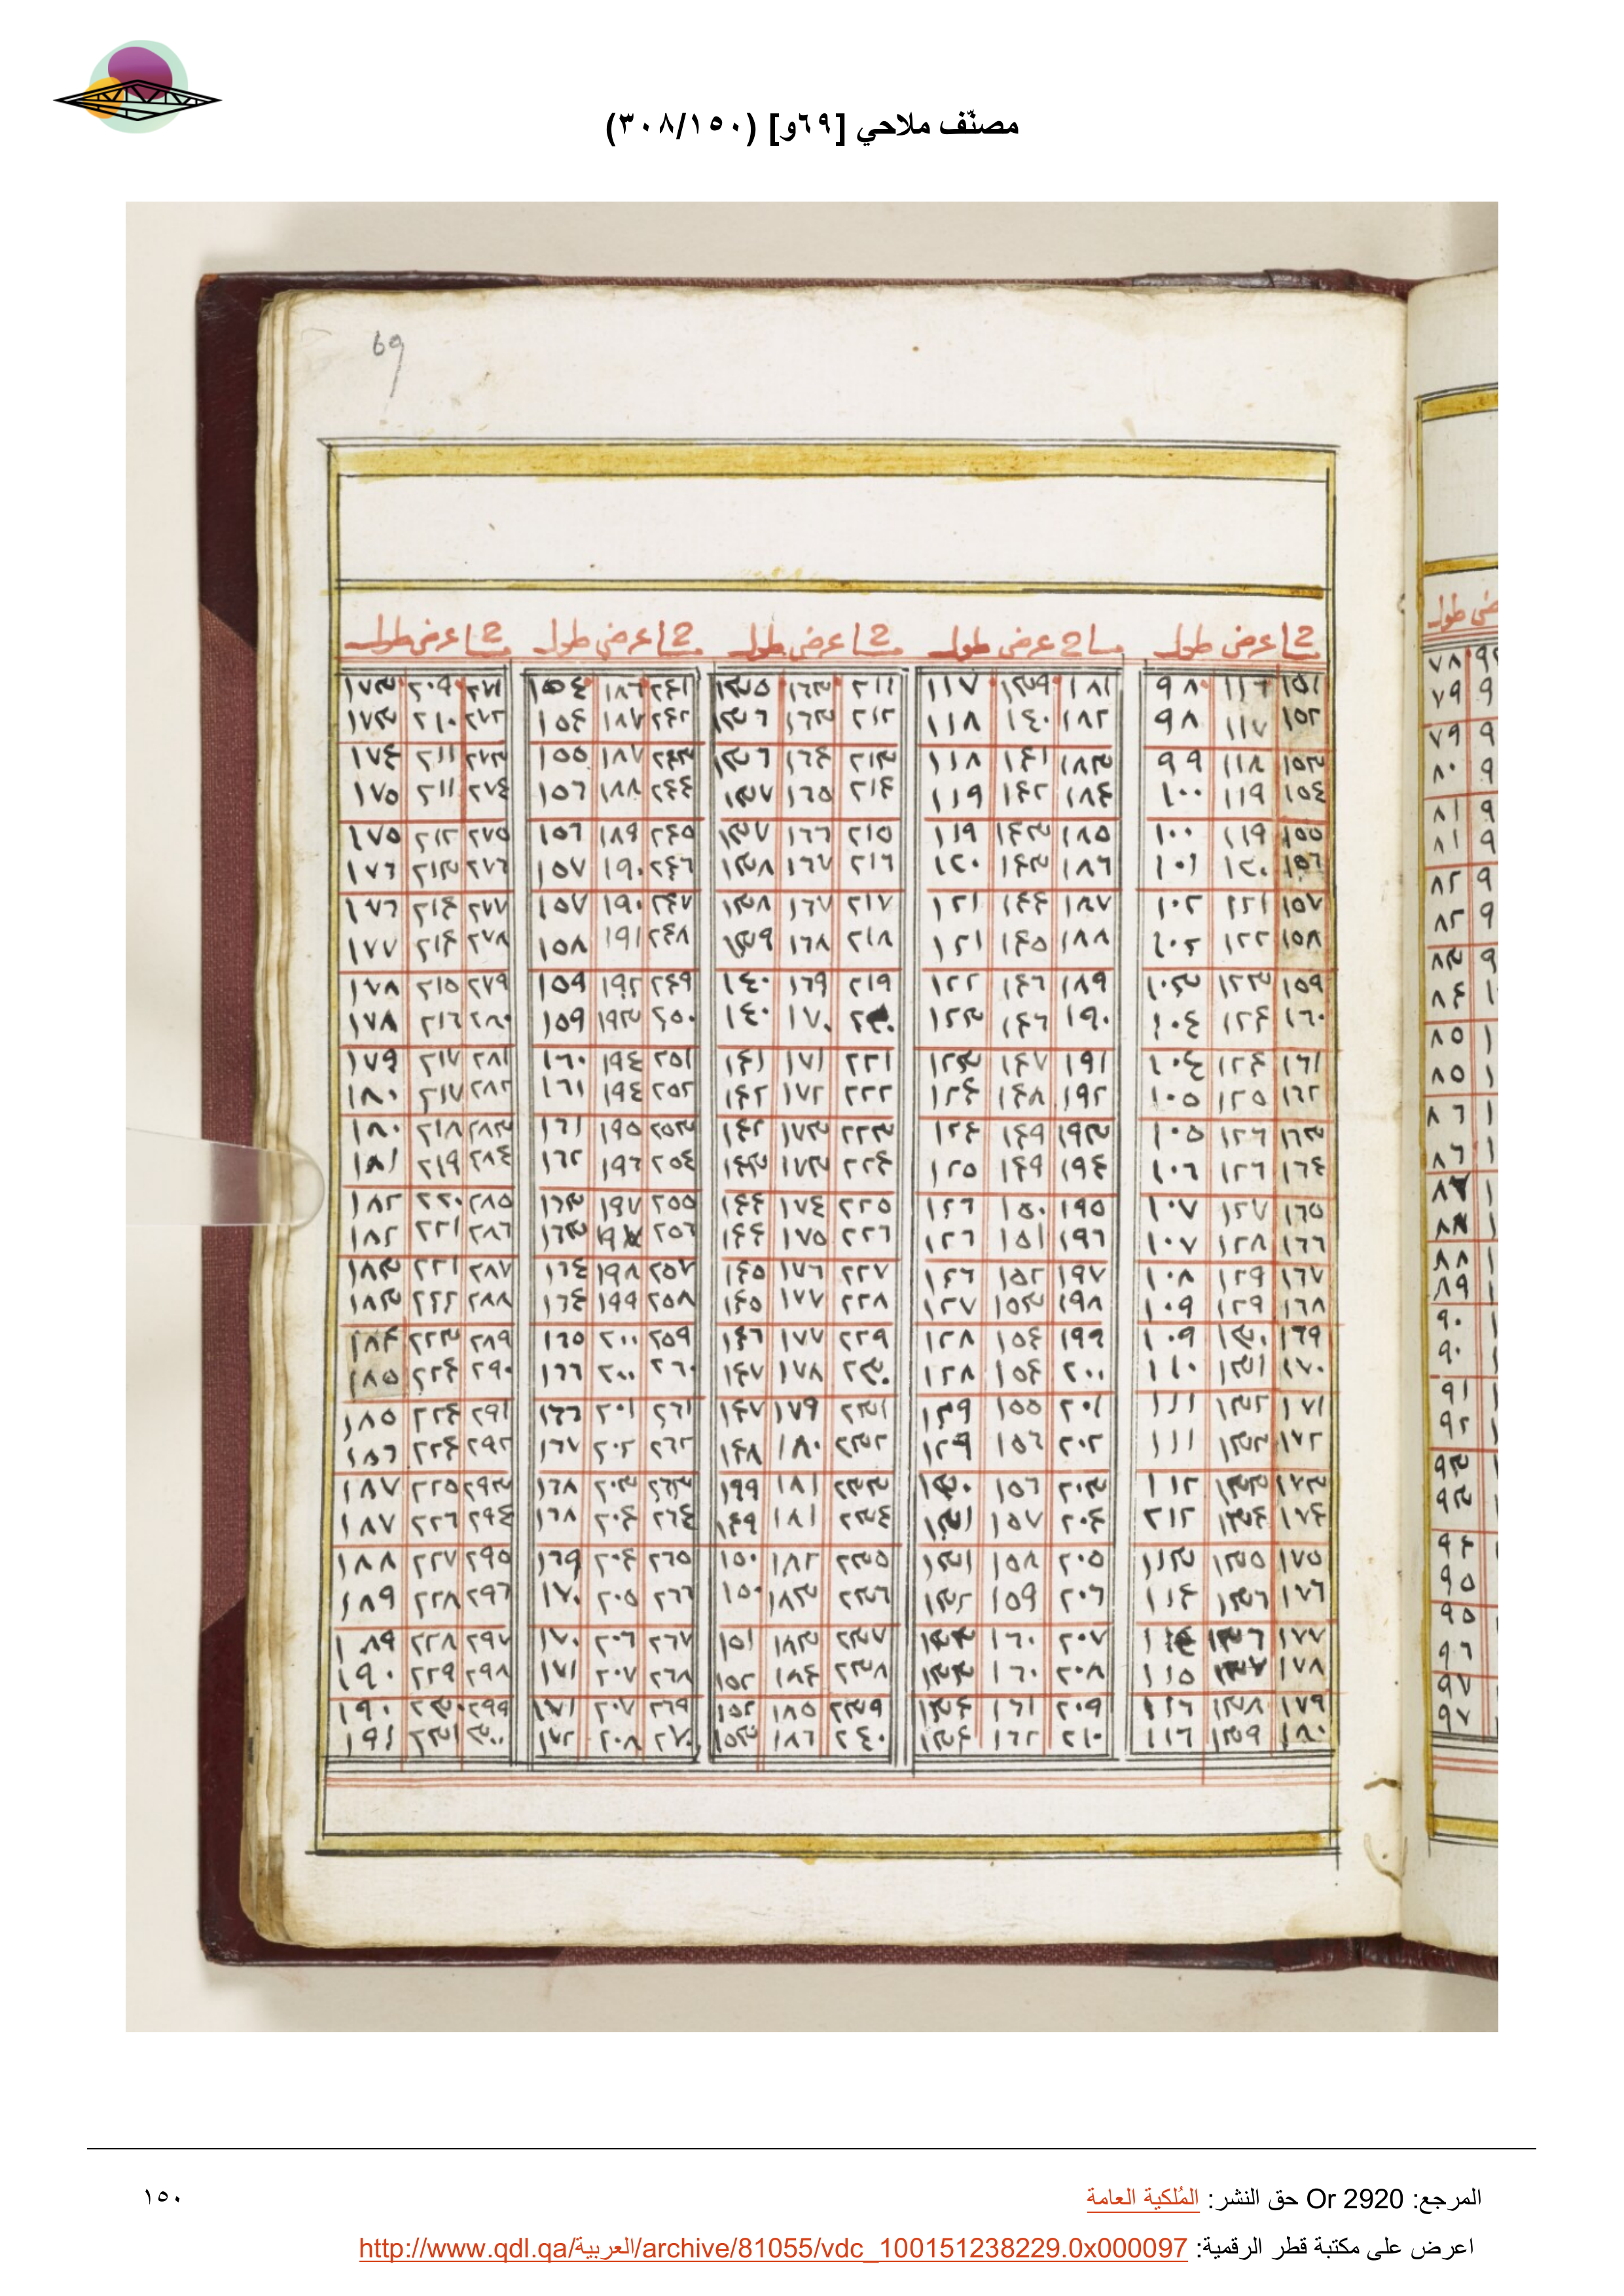 مصنّف ملاحي [٦٩و] (٣٠٨/١٥٠)
69
مسا عرض طول مسا عرض طول مسا عرض طول مسا عرض طول مسا عرض طول
١٥١ ١١٦ ٩٨ ١٨١ ١٣٩ ١١٧ ٢١١ ١٦٣ ١٣٥ ٢٤١ ١٨٦ ١٥٤ ٢٧١ ٢٠٩ ١٧٣
١٥٢ ١١٧ ٩٨ ١٨٢ ١٤٠ ١١٨ ٢١٢ ١٦٣ ١٣٦ ٢٤٢ ١٨٧ ١٥٤ ٢٧٢ ٢١٠ ١٧٣
١٥٣ ١١٨ ٩٩ ١٨٣ ١٤١ ١١٨ ٢١٣ ١٦٤ ١٣٦ ٢٤٣ ١٨٧ ١٥٥ ٢٧٣ ٢١١ ١٧٤
١٥٤ ١١٩ ١٠٠ ١٨٤ ١٤٢ ١١٩ ٢١٤ ١٦٥ ١٣٧ ٢٤٤ ١٨٨ ١٥٦ ٢٧٤ ٢١١ ١٧٥
١٥٥ ١١٩ ١٠٠ ١٨٥ ١٤٣ ١١٩ ٢١٥ ١٦٦ ١٣٧ ٢٤٥ ١٨٩ ١٥٦ ٢٧٥ ٢١٢ ١٧٥
١٥٦ ١٢٠ ١٠١ ١٨٦ ١٤٣ ١٢٠ ٢١٦ ١٦٧ ١٣٨ ٢٤٦ ١٩٠ ١٥٧ ٢٧٦ ٢١٣ ١٧٦
١٥٧ ١٢١ ١٠٢ ١٨٧ ١٤٤ ١٢١ ٢١٧ ١٦٧ ١٣٨ ٢٤٧ ١٩٠ ١٥٧ ٢٧٧ ٢١٤ ١٧٦
١٥٨ ١٢٢ ١٠٢ ١٨٨ ١٤٥ ١٢١ ٢١٨ ١٦٨ ١٣٩ ٢٤٨ ١٩١ ١٥٨ ٢٧٨ ٢١٤ ١٧٧
١٥٩ ١٢٣ ١٠٣ ١٨٩ ١٤٦ ١٢٢ ٢١٩ ١٦٩ ١٤٠ ٢٤٩ ١٩٢ ١٥٩ ٢٧٩ ٢١٥ ١٧٨
١٦٠ ١٢٤ ١٠٤ ١٩٠ ١٤٦ ١٢٣ ٢٢٠ ١٧٠ ١٤٠ ٢٥٠ ١٩٣ ١٥٩ ٢٨٠ ٢١٦ ١٧٨
١٦١ ١٢٤ ١٠٤ ١٩١ ١٤٧ ١٢٣ ٢٢١ ١٧١ ١٤١ ٢٥١ ١٩٤ ١٦٠ ٢٨١ ٢١٧ ١٧٩
١٦٢ ١٢٥ ١٠٥ ١٩٢ ١٤٨ ١٢٤ ٢٢٢ ١٧٢ ١٤٢ ٢٥٢ ١٩٤ ١٦١ ٢٨٢ ٢١٧ ١٨٠
١٦٣ ١٢٦ ١٠٥ ١٩٣ ١٤٩ ١٢٤ ٢٢٣ ١٧٣ ١٤٢ ٢٥٣ ١٩٥ ١٦١ ٢٨٣ ٢١٨ ١٨٠
١٦٤ ١٢٦ ١٠٦ ١٩٤ ١٤٩ ١٢٥ ٢٢٤ ١٧٣ ١٤٣ ٢٥٤ ١٩٦ ١٦٢ ٢٨٤ ٢١٩ ١٨١
١٦٥ ١٢٧ ١٠٧ ١٩٥ ١٥٠ ١٢٦ ٢٢٥ ١٧٤ ١٤٤ ٢٥٥ ١٩٧ ١٦٣ ٢٨٥ ٢٢٠ ١٨٢
١٦٦ ١٢٨ ١٠٧ ١٩٦ ١٥١ ١٢٦ ٢٢٦ ١٧٥ ١٤٤ ٢٥٦ ١٩٧ ١٦٣ ٢٨٦ ٢٢١ ١٨٢
١٦٧ ١٢٩ ١٠٨ ١٩٧ ١٥٢ ١٢٦ ٢٢٧ ١٧٦ ١٤٥ ٢٥٧ ١٩٨ ١٦٤ ٢٨٧ ٢٢١ ١٨٣
١٦٨ ١٢٩ ١٠٩ ١٩٨ ١٥٣ ١٢٧ ٢٢٨ ١٧٧ ١٤٥ ٢٥٨ ١٩٩ ١٦٤ ٢٨٨ ٢٢٢ ١٨٣
١٦٩ ١٣٠ ١٠٩ ١٩٩ ١٥٤ ١٢٨ ٢٢٩ ١٧٧ ١٤٦ ٢٥٩ ٢٠٠ ١٦٥ ٢٨٩ ٢٢٣ ١٨٤
١٧٠ ١٣١ ١١٠ ٢٠٠ ١٥٤ ١٢٨ ٢٣٠ ١٧٨ ١٤٧ ٢٦٠ ٢٠٠ ١٦٦ ٢٩٠ ٢٢٤ ١٨٥
١٧١ ١٣٢ ١١١ ٢٠١ ١٥٥ ١٢٩ ٢٣١ ١٧٩ ١٤٧ ٢٦١ ٢٠١ ١٦٦ ٢٩١ ٢٢٤ ١٨٥
١٧٢ ١٣٢ ١١١ ٢٠٢ ١٥٦ ١٢٩ ٢٣٢ ١٨٠ ١٤٨ ٢٦٢ ٢٠٢ ١٦٧ ٢٩٢ ٢٢٤ ١٨٦
١٧٣ ١٣٣ ١١٢ ٢٠٣ ١٥٦ ١٣٠ ٢٣٣ ١٨١ ١٩٩ ٢٦٣ ٢٠٣ ١٦٨ ٢٩٣ ٢٢٥ ١٨٧
١٧٤ ١٣٤ ٢١٢ ٢٠٤ ١٥٧ ١٣١ ٢٣٤ ١٨١ ١٤٩ ٢٦٤ ٢٠٤ ١٦٨ ٢٩٤ ٢٢٦ ١٨٧
١٧٥ ١٣٥ ١١٣ ٢٠٥ ١٥٨ ١٣١ ٢٣٥ ١٨٢ ١٥٠ ٢٦٥ ٢٠٤ ١٦٩ ٢٩٥ ٢٢٧ ١٨٨
١٧٦ ١٣٦ ١١٤ ٢٠٦ ١٥٩ ١٣٢ ٢٣٦ ١٨٣ ١٥٠ ٢٦٦ ٢٠٥ ١٧٠ ٢٩٦ ٢٢٨ ١٨٩
١٧٧ ١٣٦ ١١٤ ٢٠٧ ١٦٠ ١٣٣ ٢٣٧ ١٨٣ ١٥١ ٢٦٧ ٢٠٦ ١٧٠ ٢٩٧ ٢٢٨ ١٨٩
١٧٨ ١٣٧ ١١٥ ٢٠٨ ١٦٠ ١٣٣ ٢٣٨ ١٨٤ ١٥٢ ٢٦٨ ٢٠٧ ١٧١ ٢٩٨ ٢٢٩ ١٩٠
١٧٩ ١٣٨ ١١٦ ٢٠٩ ١٦١ ١٣٤ ٢٣٩ ١٨٥ ١٥٢ ٢٦٩ ٢٠٧ ١٧١ ٢٩٩ ٢٣٠ ١٩٠
١٨٠ ١٣٩ ١١٦ ٢١٠ ١٦٢ ١٣٤ ٢٤٠ ١٨٦ ١٥٣ ٢٧٠ ٢٠٨ ١٧٢ ٣٠٠ ٢٣١ ١٩١
المرجع: Or 2920 حق النشر: المُلكية العامة
١٥٠
اعرض على مكتبة قطر الرقمية: http://www.qdl.qa/العربية/archive/81055/vdc_100151238229.0x000097